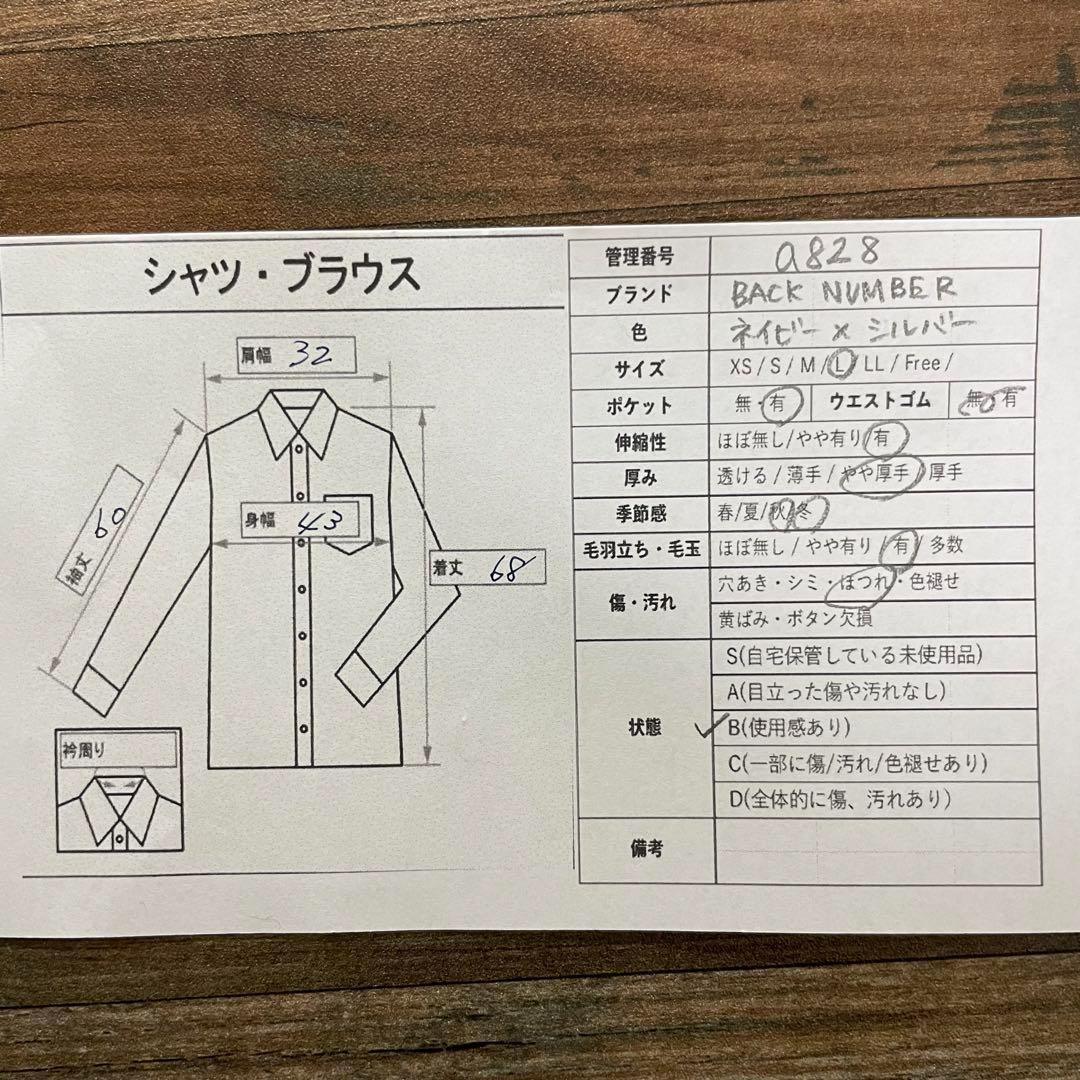 シャツ・ブラウス
肩幅 32
袖丈 60
身幅 43
着丈 68
衿周り
管理番号 a828
ブランド BACK NUMBER
色 ネイビー × シルバー
サイズ XS / S / M / L / LL / Free /
ポケット 無・有 ウエストゴム 無・有
伸縮性 ほぼ無し/やや有り/有
厚み 透ける / 薄手 / やや厚手 / 厚手
季節感 春/夏/秋/冬
毛羽立ち・毛玉 ほぼ無し / やや有り / 有 / 多数
傷・汚れ 穴あき・シミ・ほつれ・色褪せ
黄ばみ・ボタン欠損
状態 S(自宅保管している未使用品)
A(目立った傷や汚れなし)
B(使用感あり)
C(一部に傷/汚れ/色褪せあり)
D(全体的に傷、汚れあり)
備考